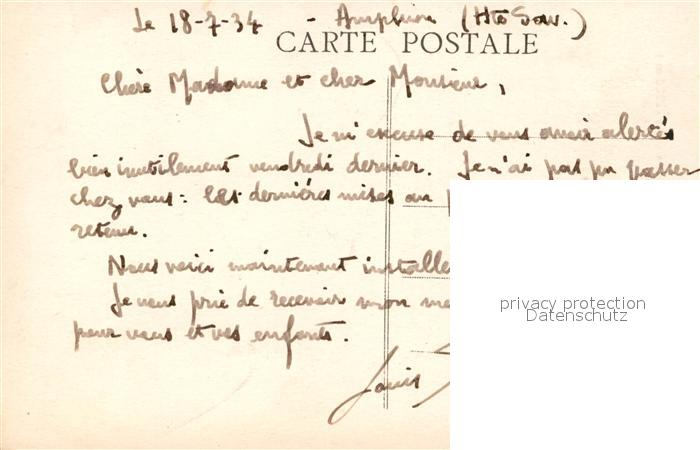 Le 18-7-34 - Amphion (Hte Sav.)
CARTE POSTALE
Chère Madame et cher Monsieur,
Je m'excuse de vous avoir alertés
bien inutilement vendredi dernier. Je n'ai pas pu passer
chez vous : les dernières mises au
retenu.
Nous voici maintenant
Je vous prie de recevoir mon
pour vous et vos enfants.
Louis
privacy protection
Datenschutz